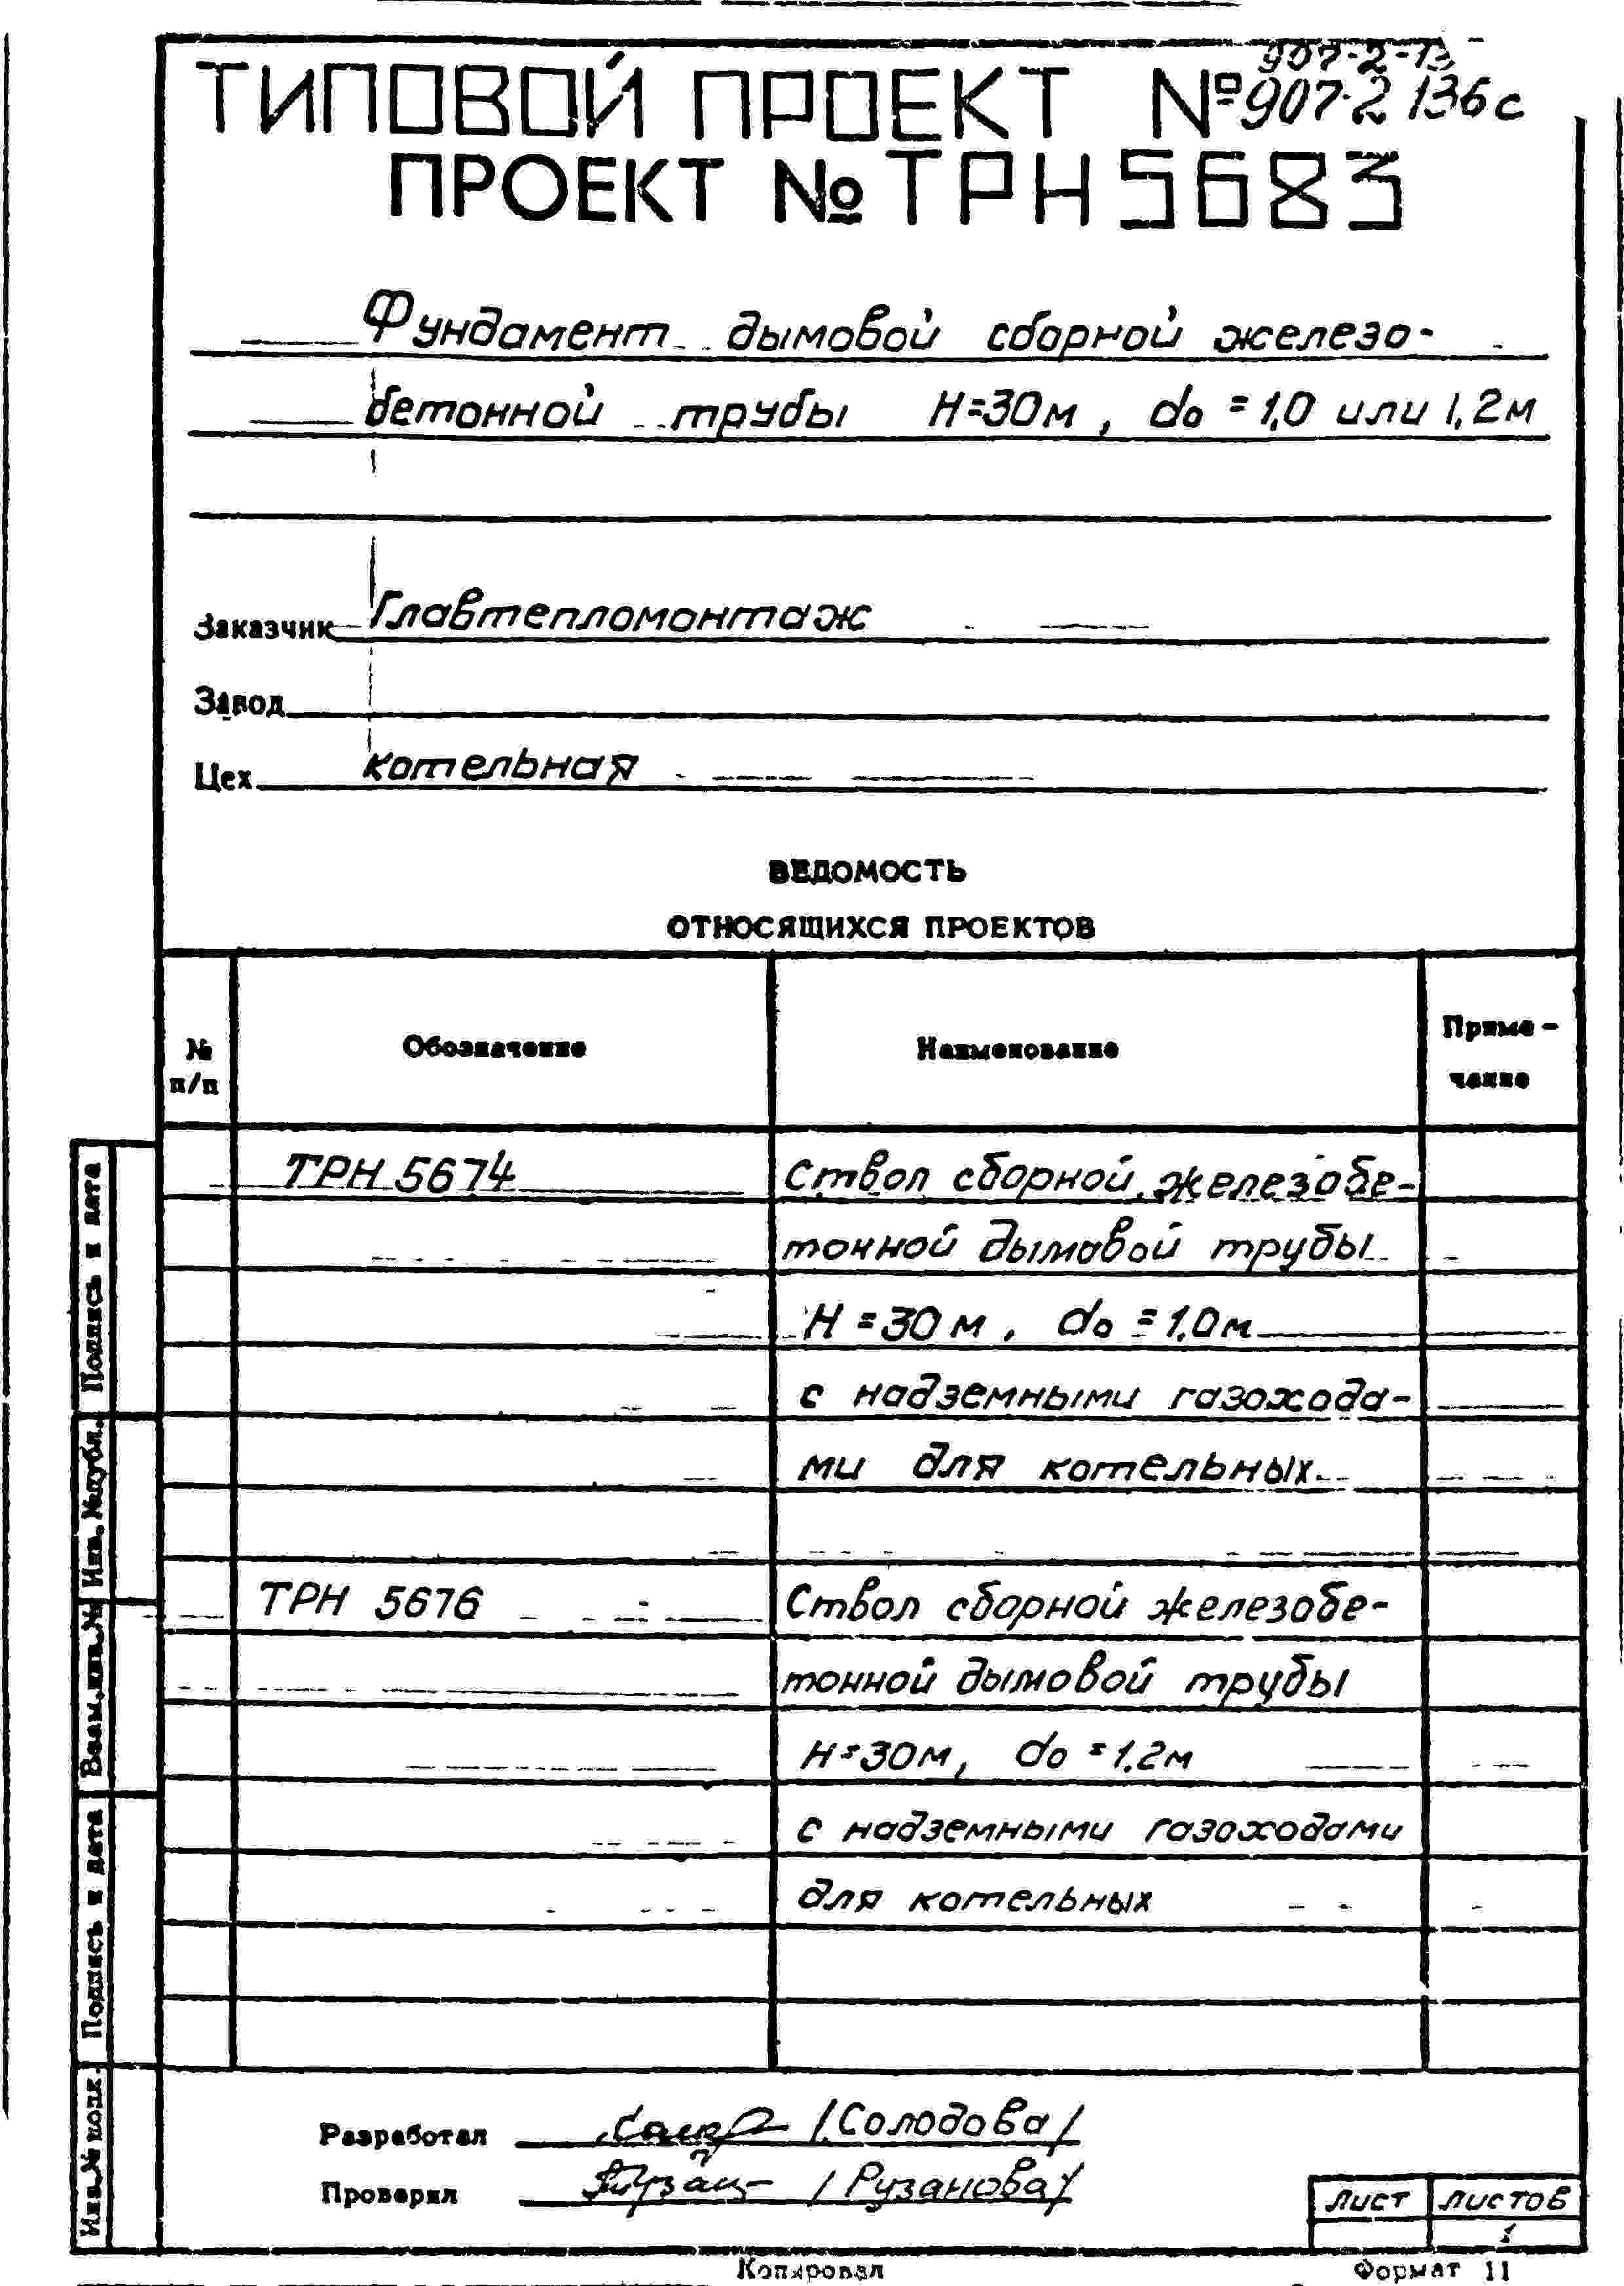 907-2-13
ТИПОВОЙ ПРОЕКТ №907-2 136с
ПРОЕКТ № ТРН 5683
Фундамент дымовой сборной железо-
бетонной трубы Н=30м, do = 1,0 или 1,2м
Заказчик Главтепломонтаж
Завод
Цех котельная
ВЕДОМОСТЬ
ОТНОСЯЩИХСЯ ПРОЕКТОВ
№ п/п Обозначение Наименование Приме-чание
ТРН 5674 Ствол сборной железобе-
тонной дымовой трубы
Н = 30 м, do = 1.0м
с надземными газохода-
ми для котельных.
ТРН 5676 Ствол сборной железобе-
тонной дымовой трубы
Н=30м, do = 1.2м
с надземными газоходами
для котельных
Разработал /Солодова/
Проверил /Рузанова/
лист листов
1
Копировал Формат 11
Подпись и дата
Инв.№дубл.
Взам.инв.№
Подпись и дата
Инв.№ подл.